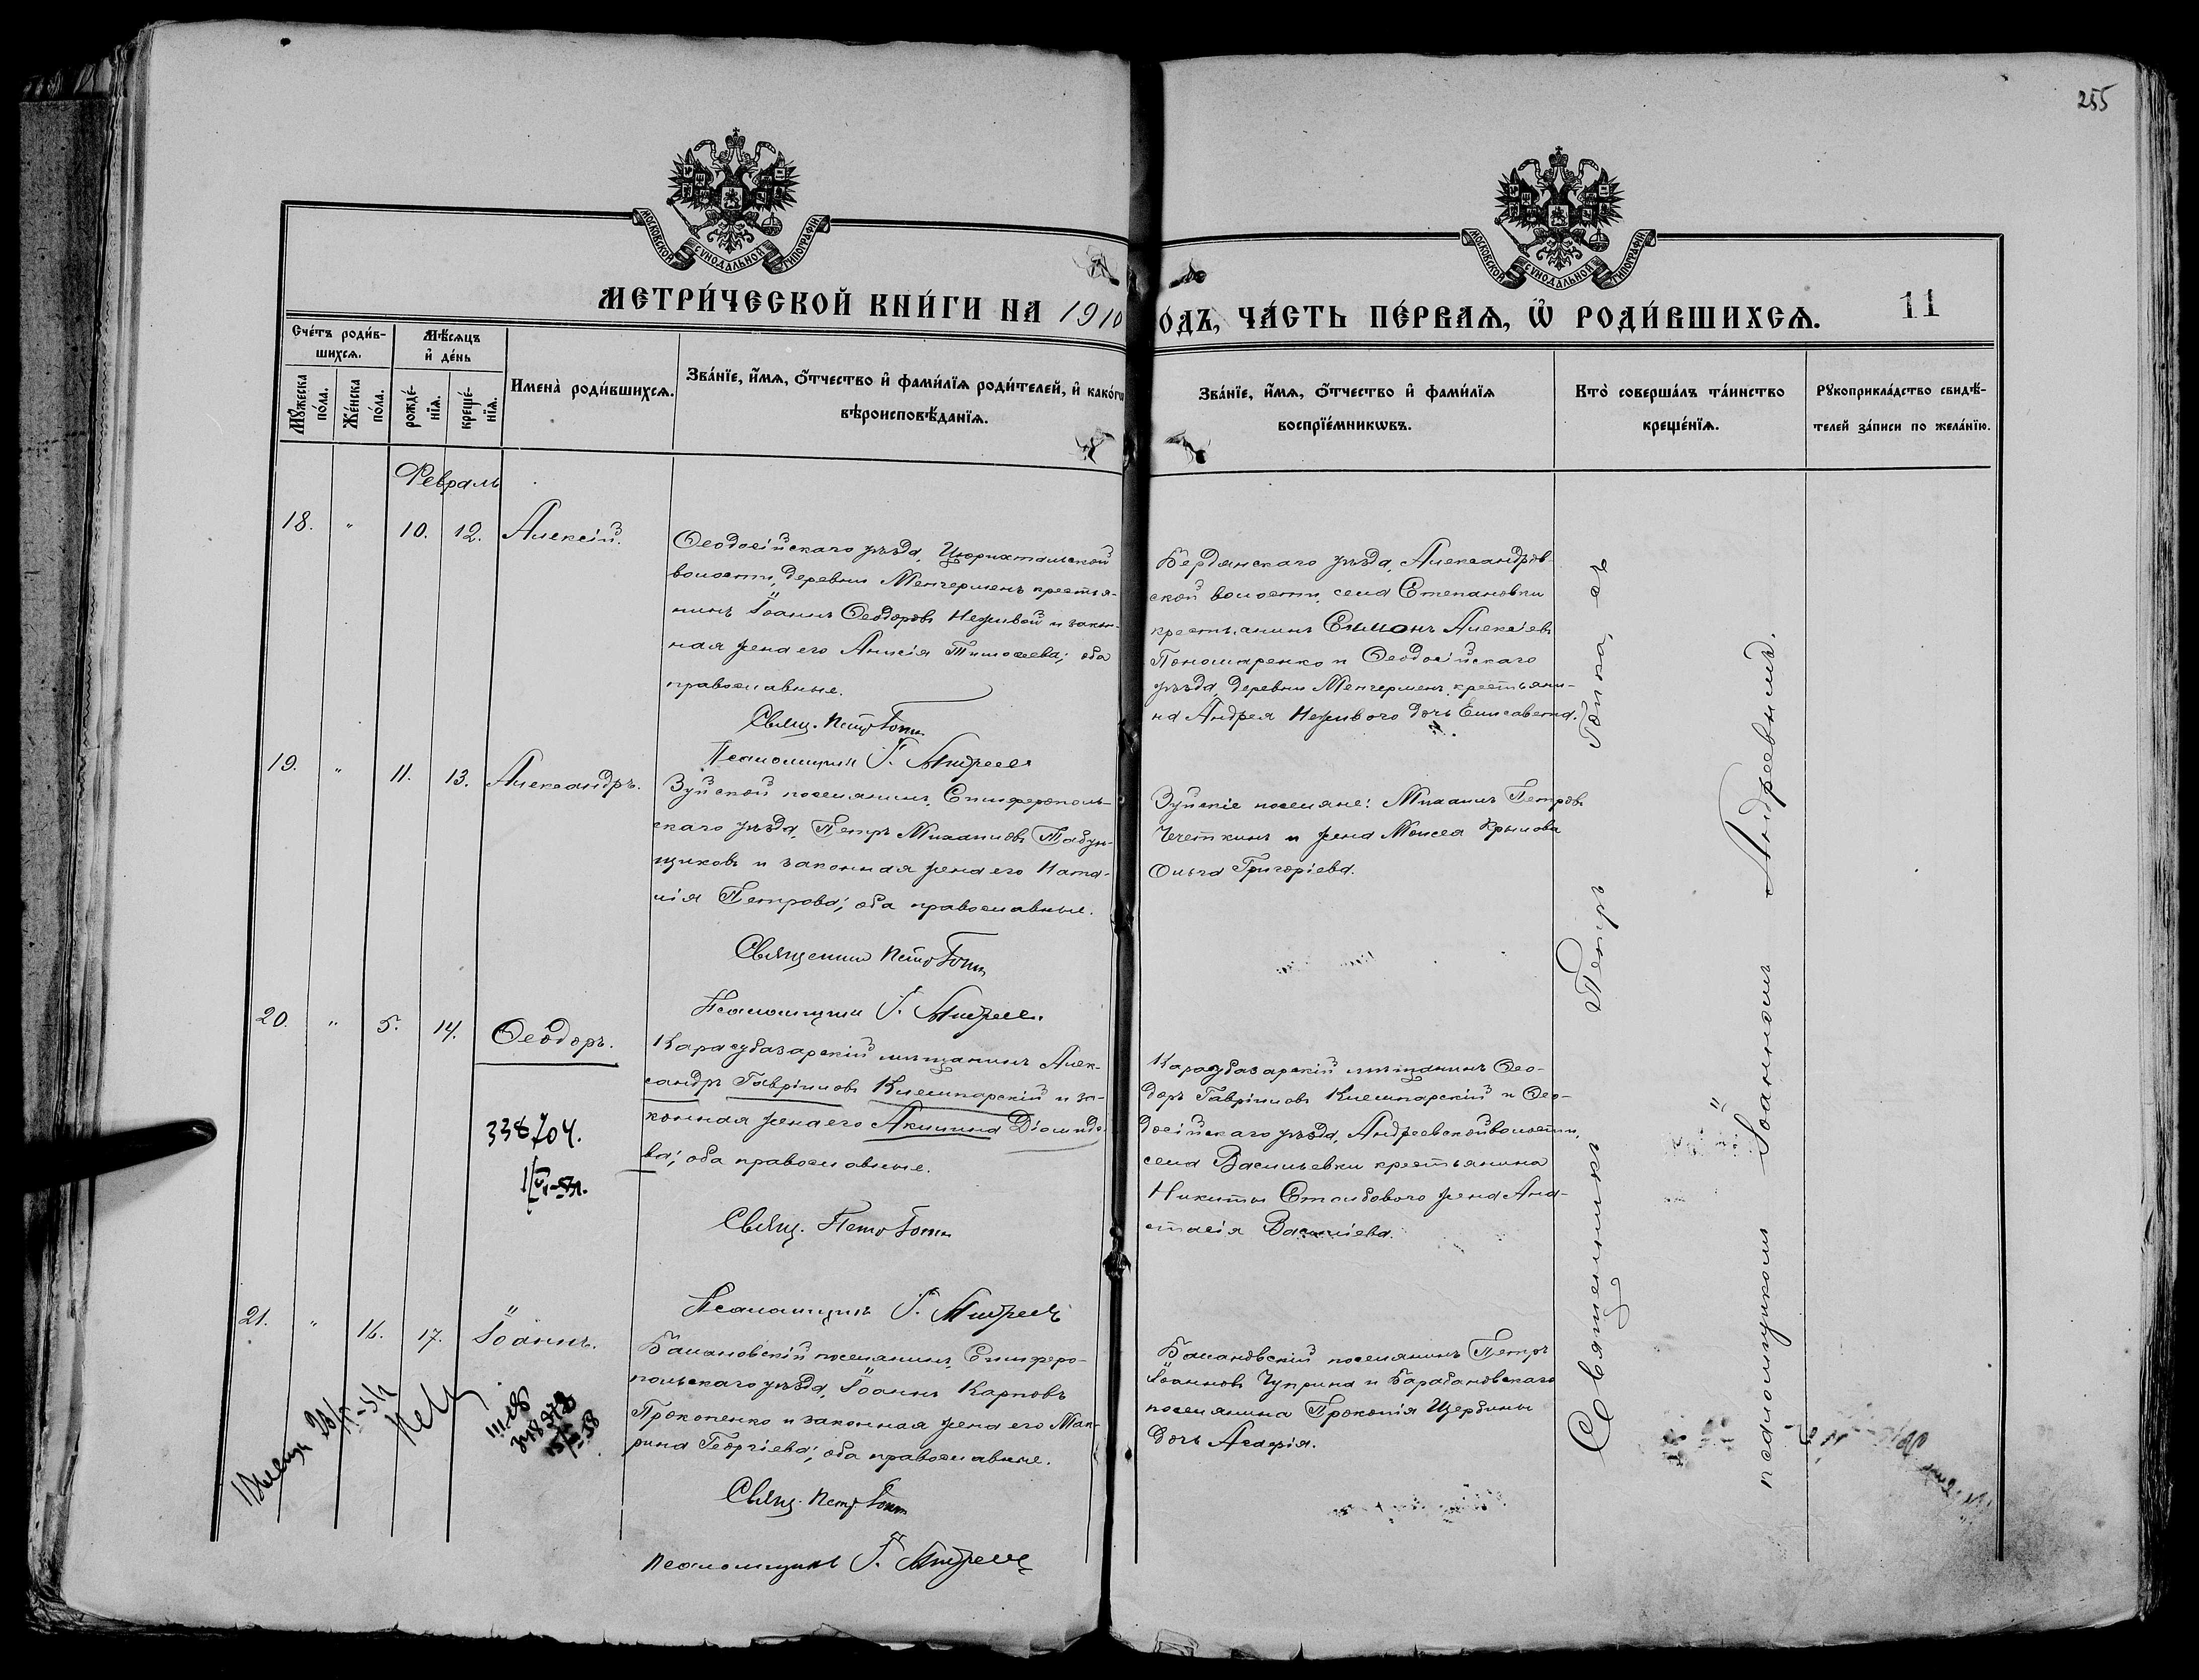 255
МОСКОВСКОЙ СѴНОДАЛЬНОЙ ТИПОГРАФІИ
МОСКОВСКОЙ СѴНОДАЛЬНОЙ ТИПОГРАФІИ
МЕТРИ́ЧЕСКОЙ КНИ́ГИ НА 1910
ОДЪ, ЧА́СТЬ ПЕ́РВАѦ, Ѿ РОДИ́ВШИХСѦ.
11
Сче́тъ роди́в-
шихсѧ.
Мѣ́сѧцъ
и҆ де́нь
Мꙋ́жеска
по́ла.
Же́нска
по́ла.
рожде́-
нїѧ.
креще́-
нїѧ.
Имена̀ роди́вшихсѧ.
Зва́нїе, и҆́мѧ, ѻ҆́тчество и҆ фами́лїѧ роди́телей, и҆ како́гѡ
вѣроисповѣ́данїѧ.
Зва́нїе, и҆́мѧ, ѻ҆́тчество и҆ фами́лїѧ
воспрїе́мникѡвъ.
Кто̀ соверша́лъ та́инство
креще́нїѧ.
Рꙋкоприкла́дство свидѣ́-
телей за́писи по жела́нїю.
Февраль
18. " 10. 12. Алексій.
Ѳеодосійскаго уѣзда, Цюрихтальской
волости, деревни Менгерменъ крестья-
нинъ Іоаннъ Ѳеодоровъ Неживой и закон-
ная жена его Анисія Тимоѳеева; оба
православные.
Свящ. Петръ Гопка
Псаломщикъ І. Андреевъ
Бердянскаго уѣзда, Александров-
ской волости, села Степановки
крестьянинъ Симонъ Алексіевъ
Пономаренко и Ѳеодосійскаго
уѣзда, деревни Менгерменъ, крестьяни-
на Андрея Неживого дочь Елисавета.
19. " 11. 13. Александръ.
Зуйской поселянинъ, Симферополь-
скаго уѣзда, Петръ Михаиловъ Табун-
щиковъ и законная жена его Ната-
лія Петрова; оба православные.
Священникъ Петръ Гопка
Псаломщикъ І. Андреевъ
Зуйскіе поселяне: Михаилъ Петровъ
Четкинъ и жена Моисея Крылова
Ольга Григоріева.
20. " 5. 14. Ѳеодоръ.
Карасубазарскій мѣщанинъ Алек-
сандръ Гавріиловъ Клешнарскій и за-
конная жена его Акилина Діомидо-
ва; оба православные.
338704.
Свящ. Петръ Гопка
Псаломщикъ І. Андреевъ
Карасубазарскій мѣщанинъ Ѳео-
доръ Гавріиловъ Клешнарскій и Ѳео-
досійскаго уѣзда, Андреевской волости,
села Васильевки крестьянина
Никиты Столбового жена Ана-
стасія Василіева.
21. " 16. 17. Іоаннъ.
Балановскій поселянинъ, Симферо-
польскаго уѣзда, Іоаннъ Карповъ
Прокопенко и законная жена его Мак-
рина Георгіева; оба православные.
Свящ. Петръ Гопка
Псаломщикъ І. Андреевъ
Балановскій поселянинъ Петръ
Іоанновъ Чуприна и Барабановскаго
поселянина Прокопія Щербины
дочь Агаѳія.
Священникъ Петръ Гопка, съ
псаломщикомъ Іоанномъ Андреевымъ.